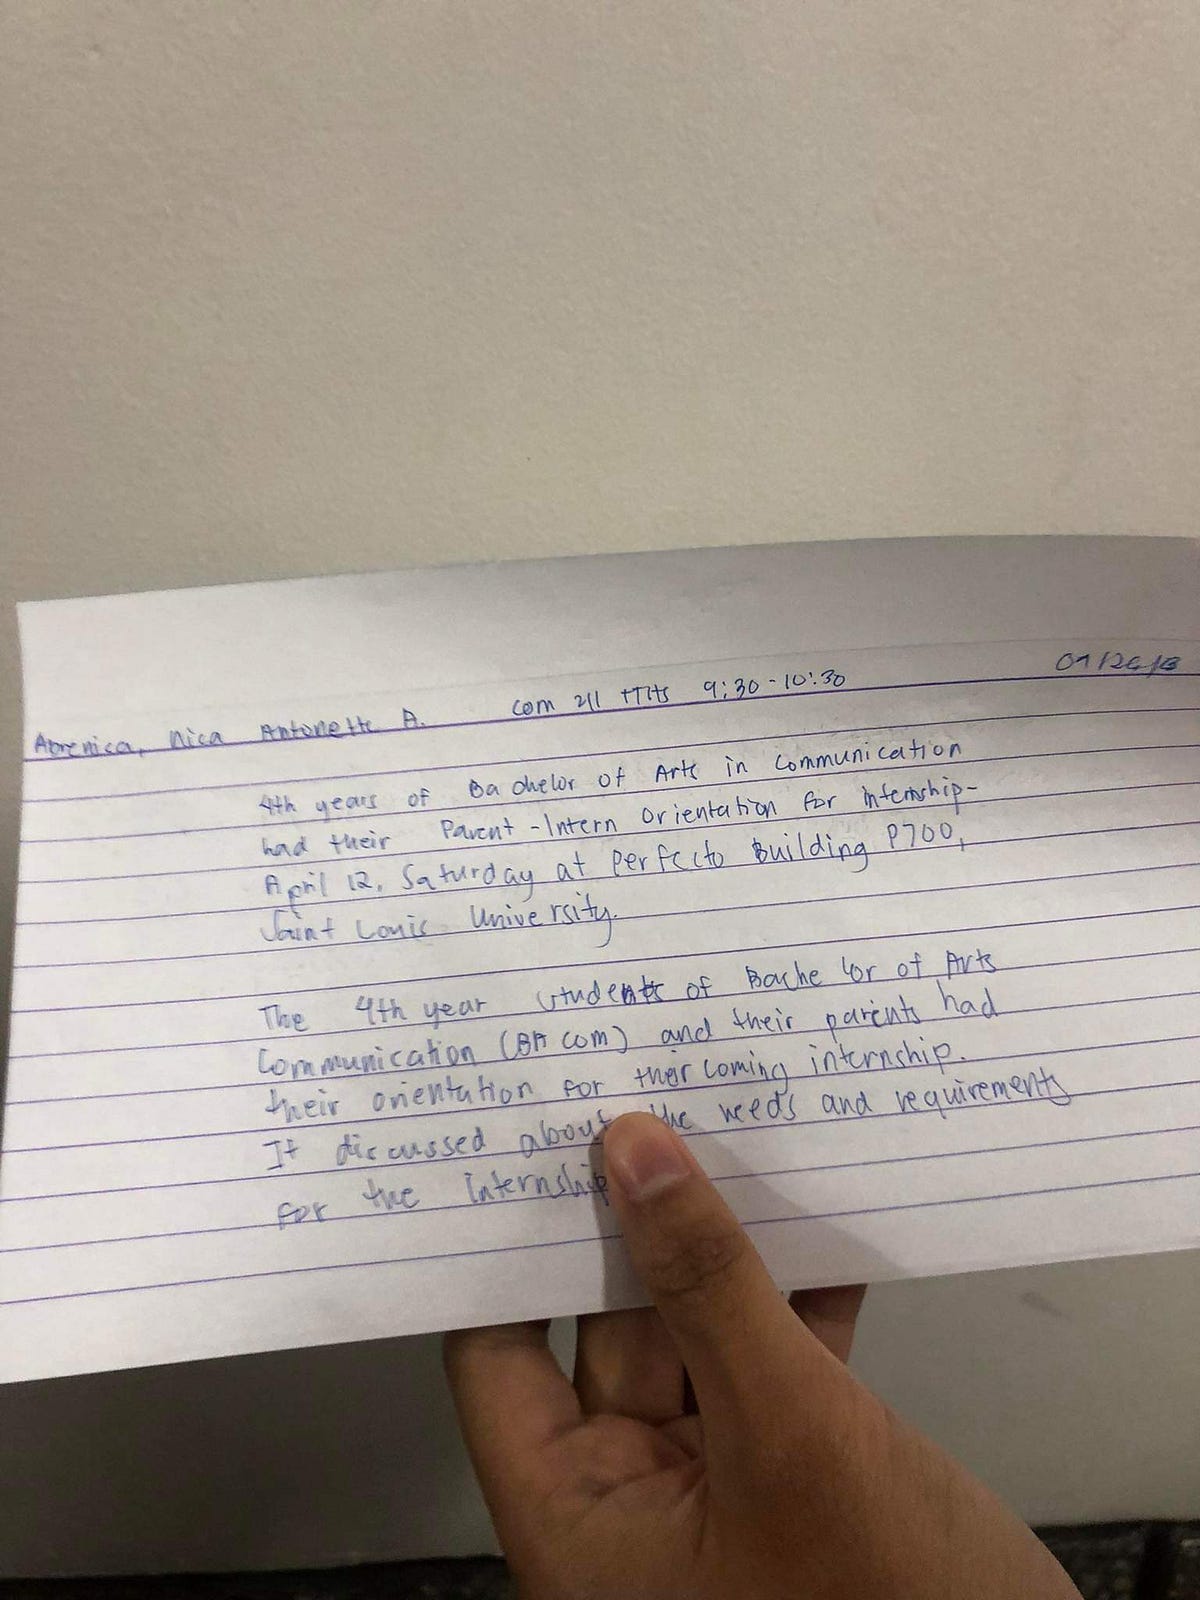 Abrenica, Nica Antonette A. com 211 TTHS 9:30-10:30
4th years of Bachelor of Arts in Communication
had their Parent-Intern Orientation for internship-
April 12, Saturday at Perfecto Building P700,
Saint Louis University.
The 4th year students of Bachelor of Arts
Communication (BA COM) and their parents had
their orientation for their coming internship.
It discussed about the needs and requirements
for the Internship